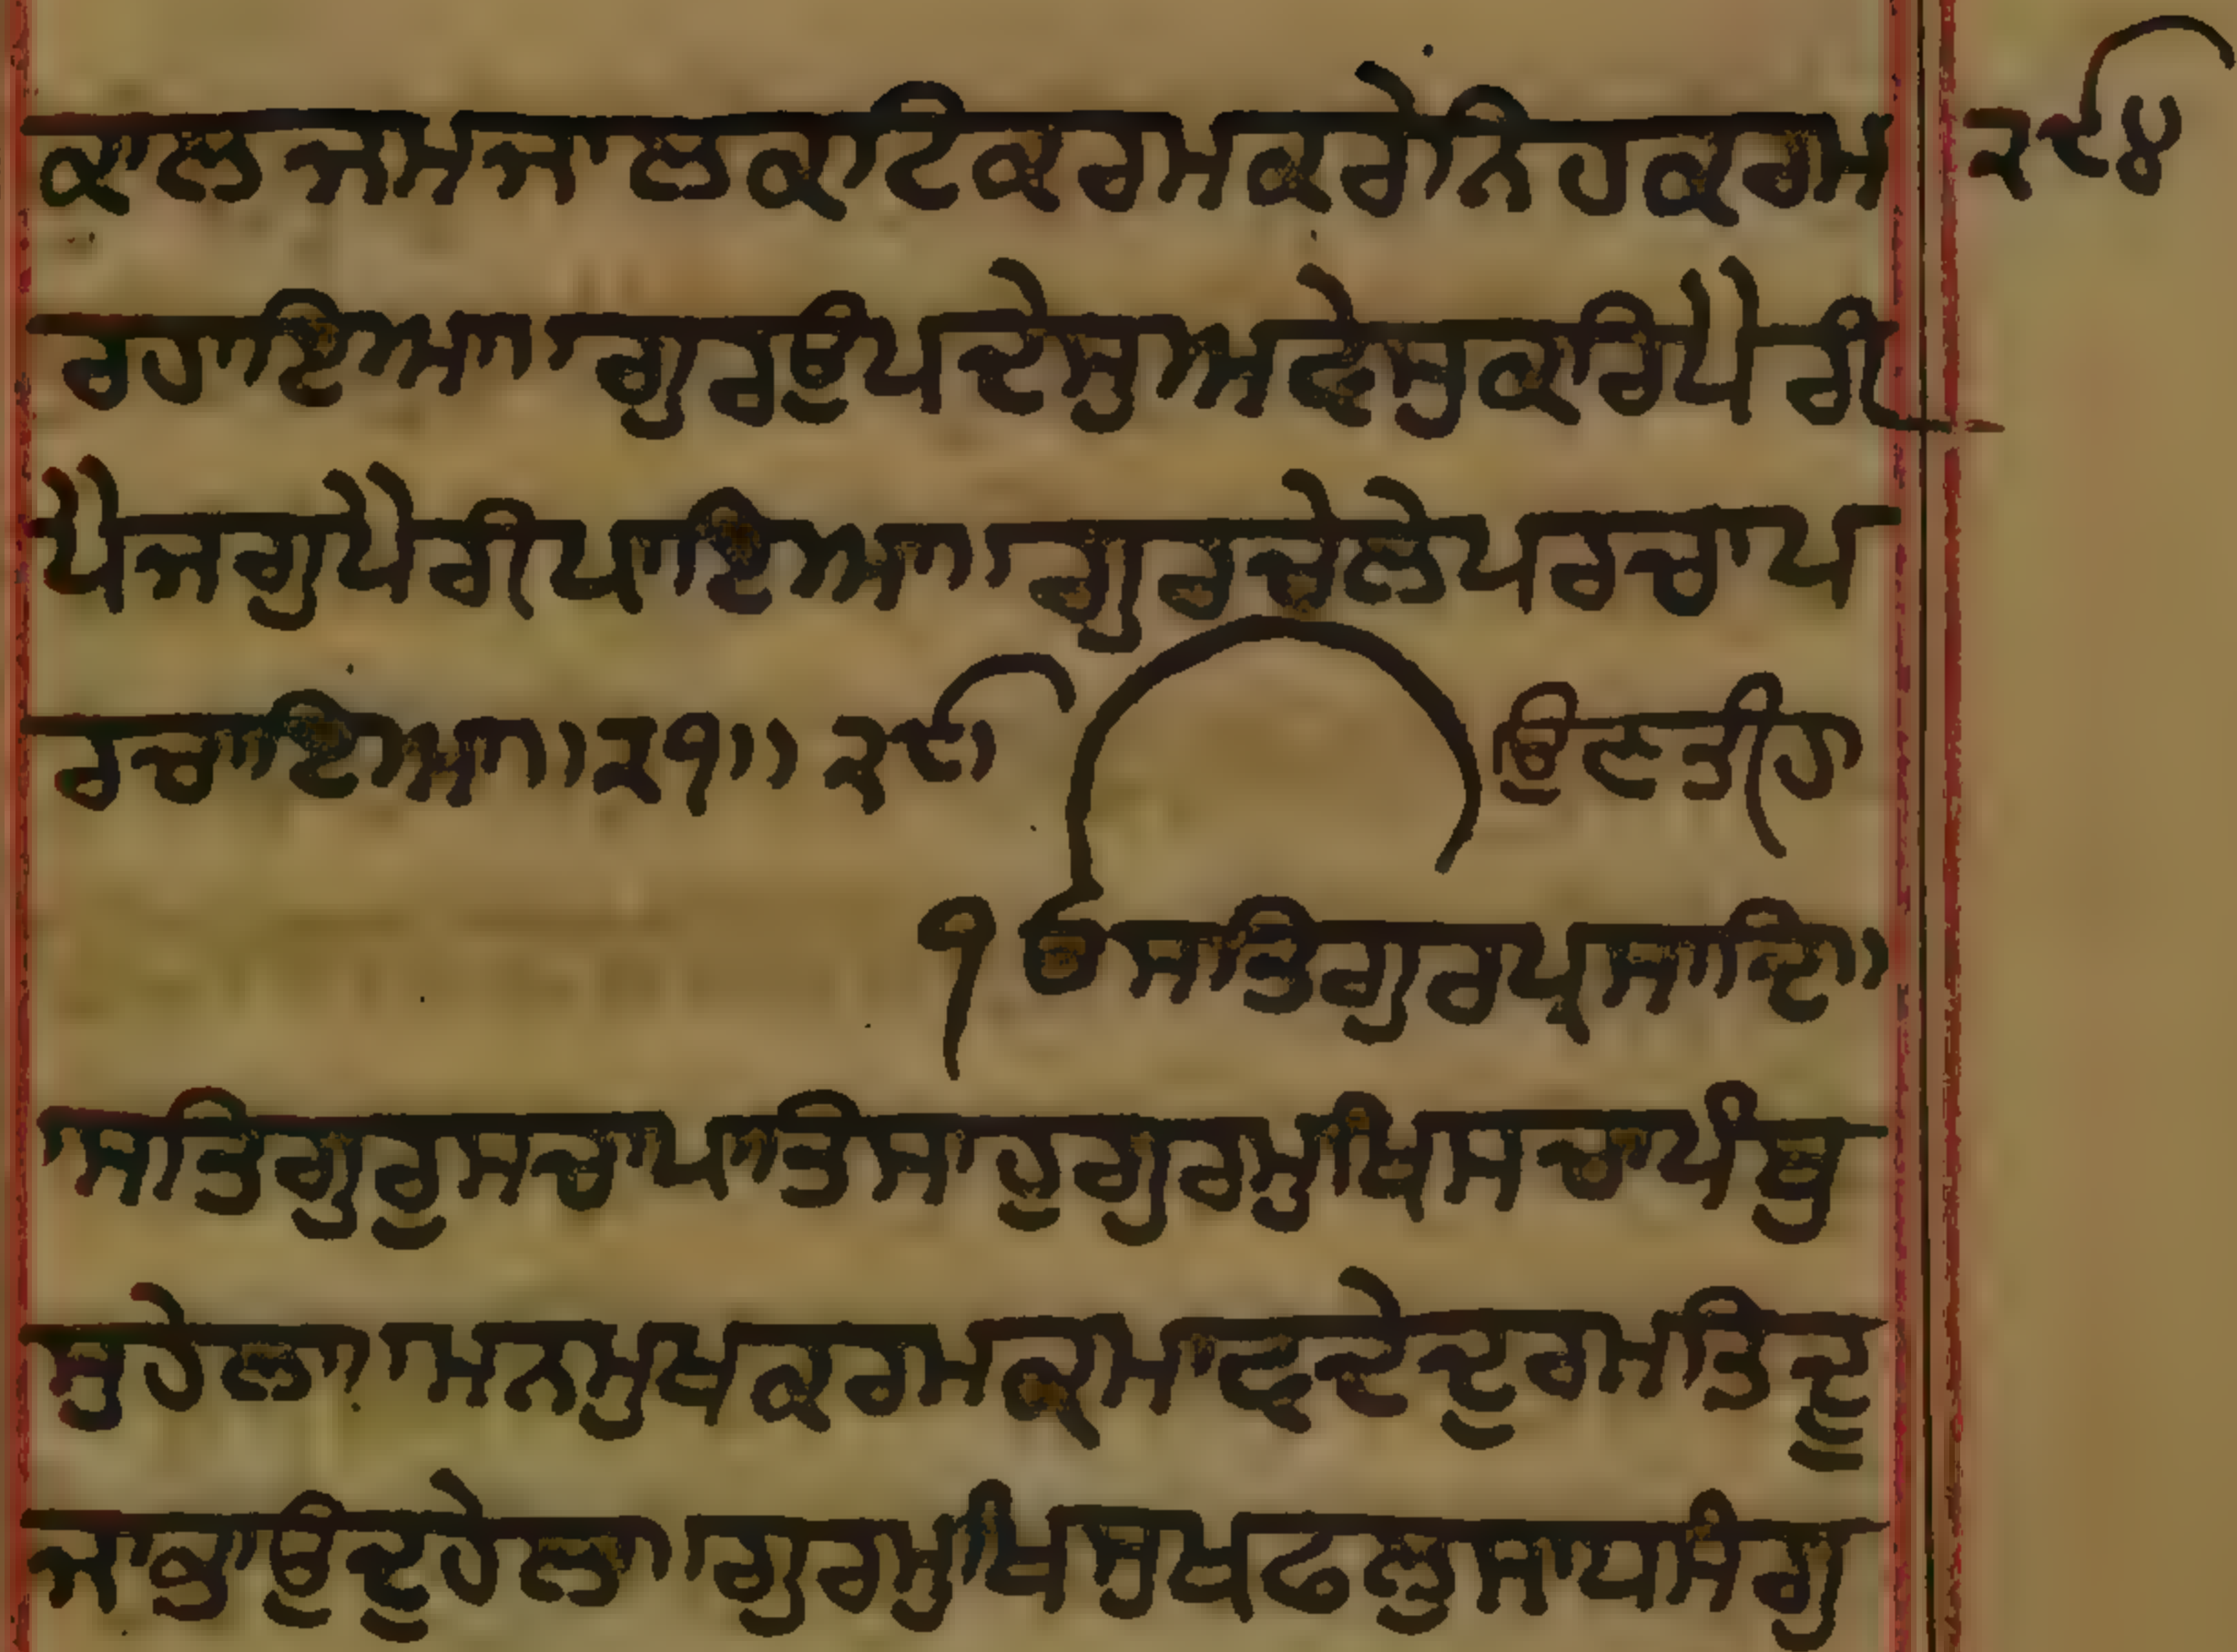 ਕਾਲ ਜਮਜਾਲ ਕਾਟਿ ਕਰਮ ਕਰੇ ਨਿਹਕਰਮ ੨੯੪
ਰਹਾਇਆ। ਗੁਰ ਉਪਦੇਸੁ ਅਵੇਸੁ ਕਰਿ ਪੈਰੀ
ਪੈ ਜਗੁ ਪੈਰੀ ਪਾਇਆ। ਗੁਰ ਚੇਲੇ ਪਰਚਾ ਪ
ਰਚਾਇਆ।੨੧। ੨੯। ਉਣਤੀਹ
ੴ ਸਤਿਗੁਰ ਪ੍ਰਸਾਦਿ।
ਸਤਿਗੁਰੁ ਸਚਾ ਪਾਤਿਸਾਹੁ ਗੁਰਮੁਖਿ ਸਚਾ ਪੰਥੁ
ਸੁਹੇਲਾ। ਮਨਮੁਖ ਕਰਮ ਕਮਾਵਦੇ ਦੁਰਮਤਿ ਦੂ
ਜਾ ਭਾਉ ਦੁਹੇਲਾ। ਗੁਰਮੁਖਿ ਸੁਖਫਲੁ ਸਾਧਸੰਗੁ